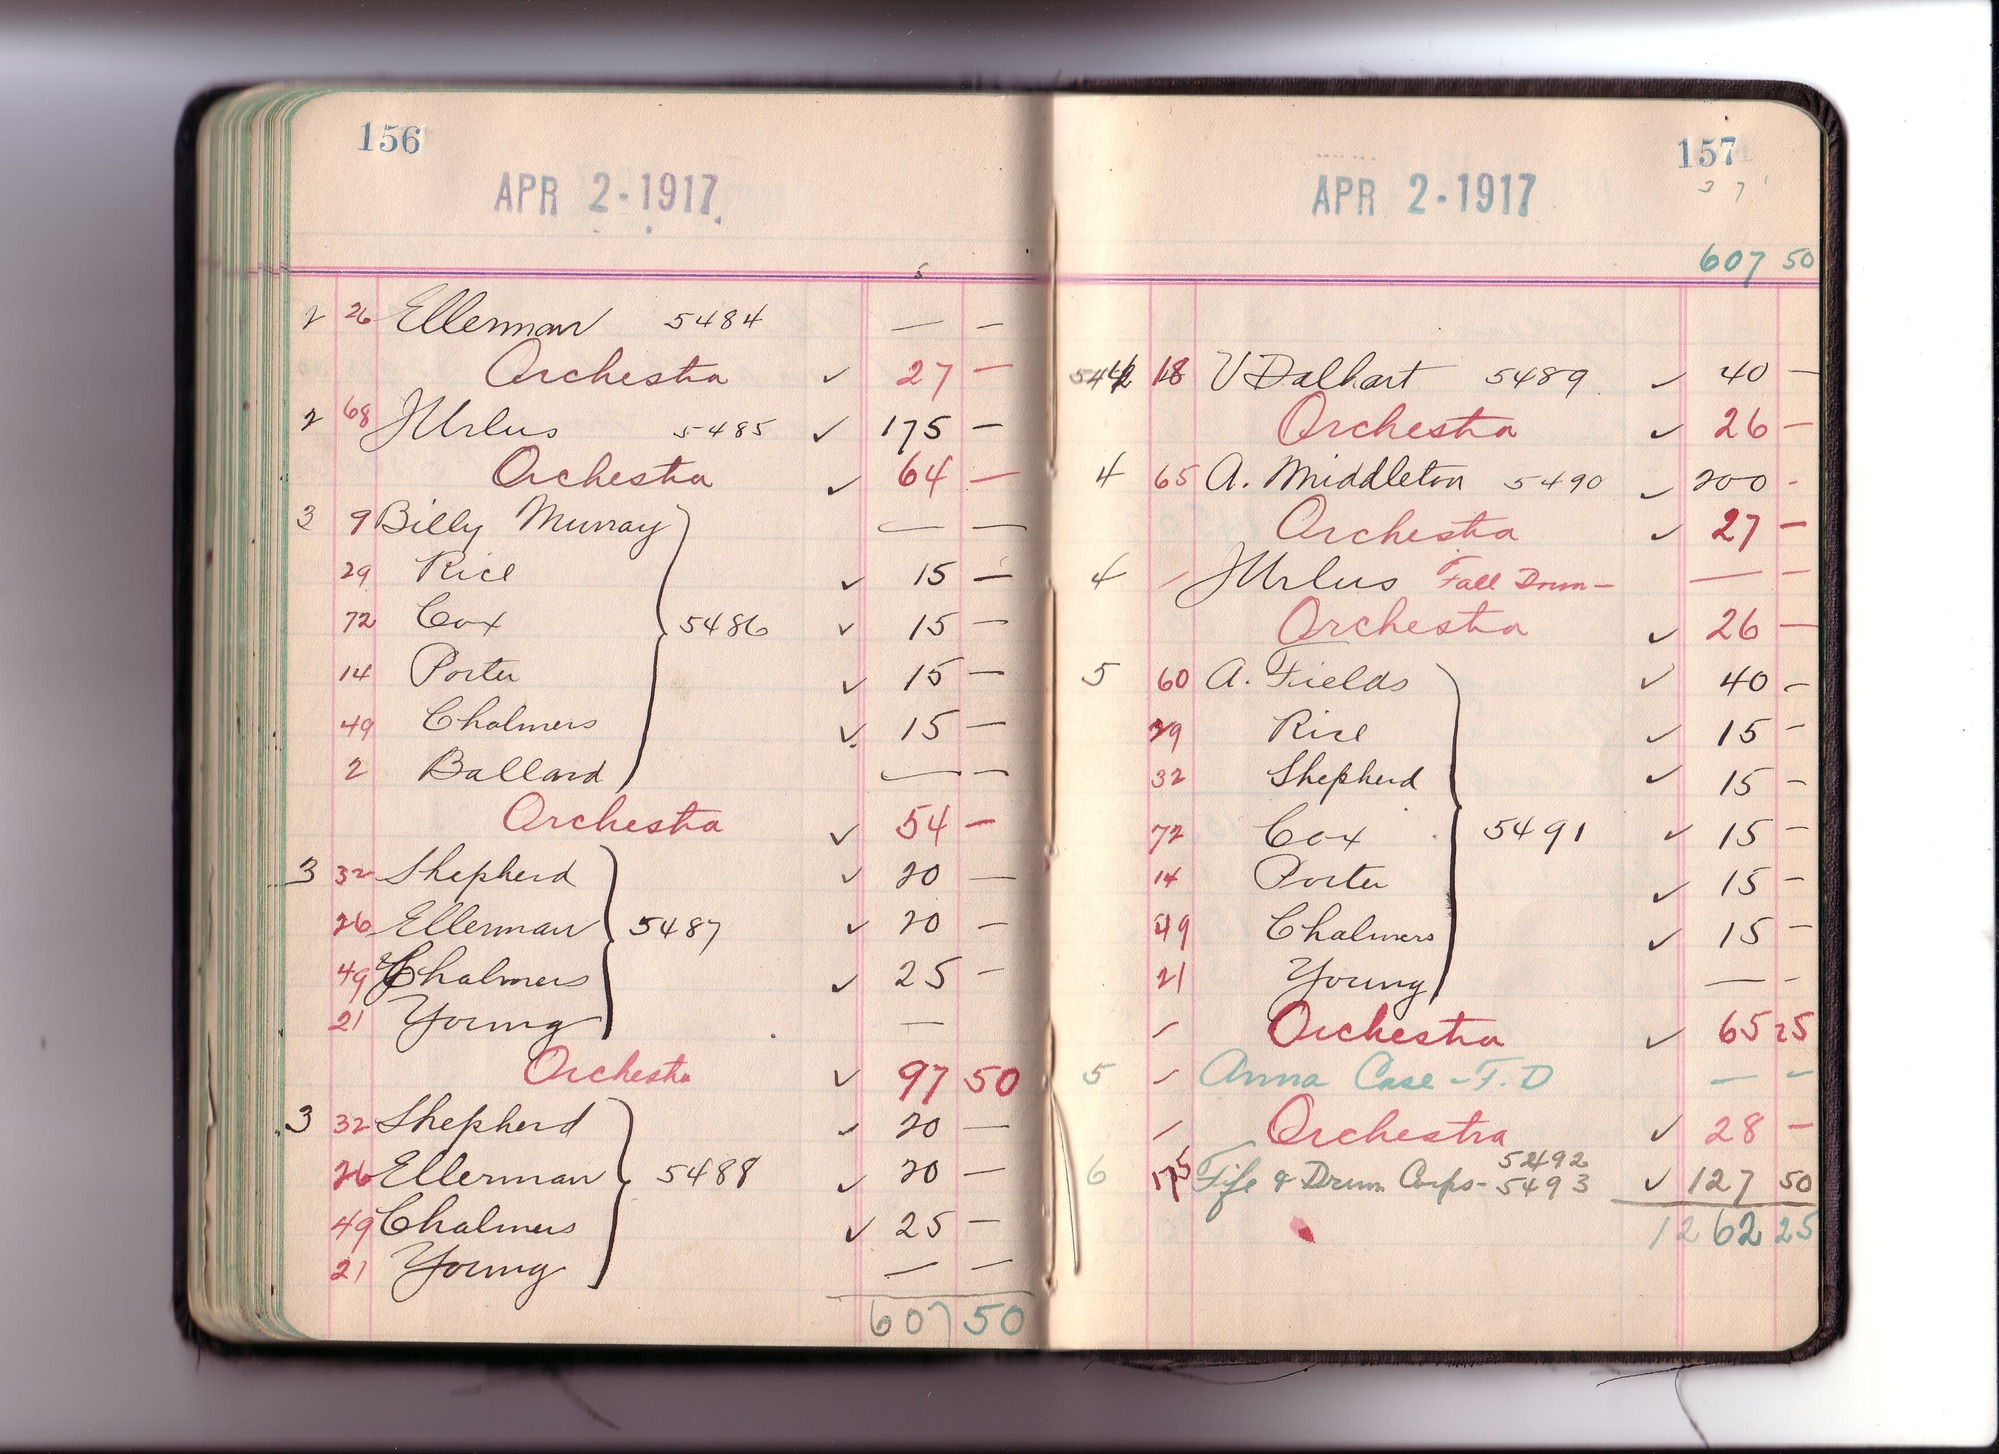 156
APR 2-1917
2 26 Ellerman 5484 — —
Orchestra ✓ 27 —
2 68 J Urlus 5485 ✓ 175 —
Orchestra ✓ 64 —
3 9 Billy Murray — —
29 Rice ✓ 15 —
72 Cox 5486 ✓ 15 —
14 Porter ✓ 15 —
49 Chalmers ✓ 15 —
2 Ballard — —
Orchestra ✓ 54 —
3 32 Shepherd ✓ 20 —
26 Ellerman 5487 ✓ 20 —
49 Chalmers ✓ 25 —
21 Young —
Orchestra ✓ 97 50
3 32 Shepherd ✓ 20 —
26 Ellerman 5488 ✓ 20 —
49 Chalmers ✓ 25 —
21 Young — —
607 50
157
APR 2-1917
3 7
607 50
18 V Dalhart 5489 ✓ 40 —
Orchestra ✓ 26 —
4 65 A. Middleton 5490 ✓ 200 -
Orchestra ✓ 27 —
4 J Urlus Fall Drum — — —
Orchestra ✓ 26 —
5 60 A. Fields ✓ 40 -
29 Rice ✓ 15 —
32 Shepherd ✓ 15 —
72 Cox 5491 ✓ 15 —
14 Porter ✓ 15 —
49 Chalmers ✓ 15 —
21 Young — -
Orchestra ✓ 65 25
5 Anna Case - F. D — —
Orchestra ✓ 28 —
5492
6 175 Fife & Drum Corps - 5493 ✓ 127 50
1262 25